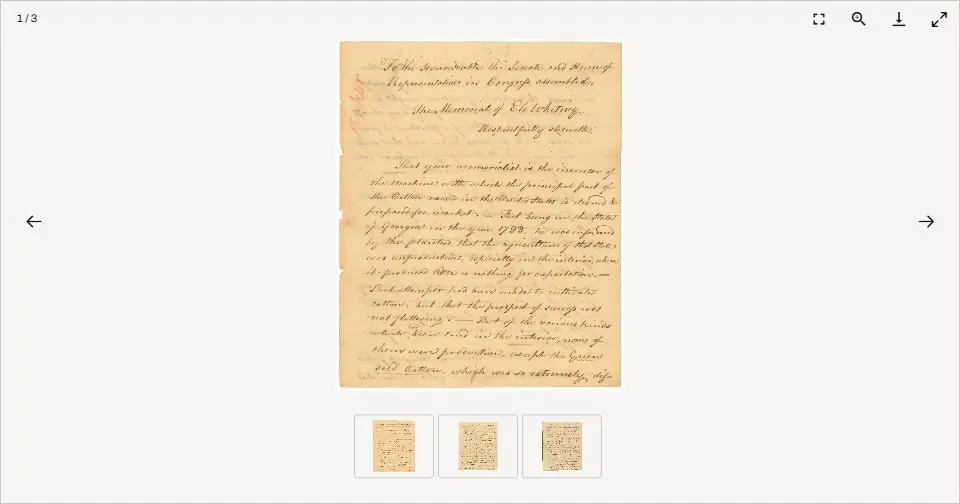 1 / 3
To the Honourable the Senate and House of
Representatives in Congress assembled.
The Memorial of Eli Whitney.
Respectfully sheweth,
That your memorialist is the inventor of
the machine with which the principal part of
the Cotton raised in the United States is cleaned &
prepared for market. — That being in the State
of Georgia in the year 1793, he was informed
by the planters, that the agriculture of that State
was unproductive, especially in the interior, where
it produced little or nothing for exportation. —
That attempts had been made to cultivate
cotton; but that the prospect of success was
not flattering. — That of the various kinds
which had been tried in the interior, none of
them were productive, except the Green
seed Cotton, which was so extremely dif-